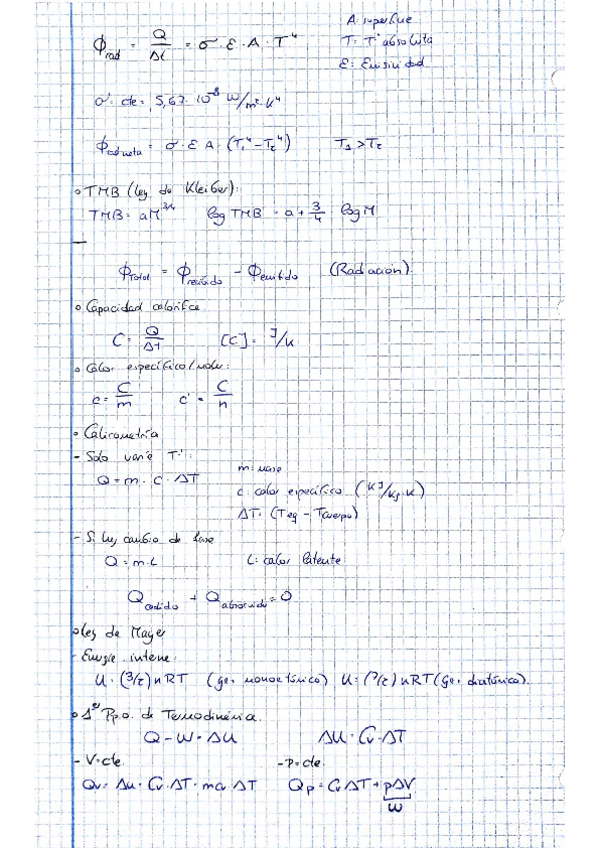 Φrad = Q/Δt = σ · ε · A · T⁴
A: superficie
T: Tª absoluta
ε: Emisividad
σ: cte = 5,67 · 10⁻⁸ W/m²·K⁴
Φrad neta = σ · ε A · (T₁⁴ - T₂⁴) T₁ > T₂
• TMB (ley de Kleiber):
TMB = aM^3/4 log TMB = a + 3/4 log M
Φtotal = Φrecibido - Φemitido (Radiación)
• Capacidad calorífica
C = Q/Δt [C] = J/K
• Calor específico/molar:
c = C/m c' = C/n
• Calirometría
- Solo varíe Tª:
Q = m · c · ΔT
m: masa
c: calor específico (KJ/Kg·K)
ΔT = (Teq - Tcuerpo)
- Si hay cambio de fase
Q = m·L L: calor latente
Qcedido + Qabsorvido = 0
• Ley de Mayer
- Energía interna:
U = (3/2) nRT (gas monoatómico) U = (5/2) nRT (gas diatómico).
• 1er Ppo. de Termodinámica.
Q - W = ΔU ΔU = Cv · ΔT
- V = cte. - P = cte.
Qv = Δu = Cv · ΔT = mcv ΔT Qp = CvΔT + pΔV
W